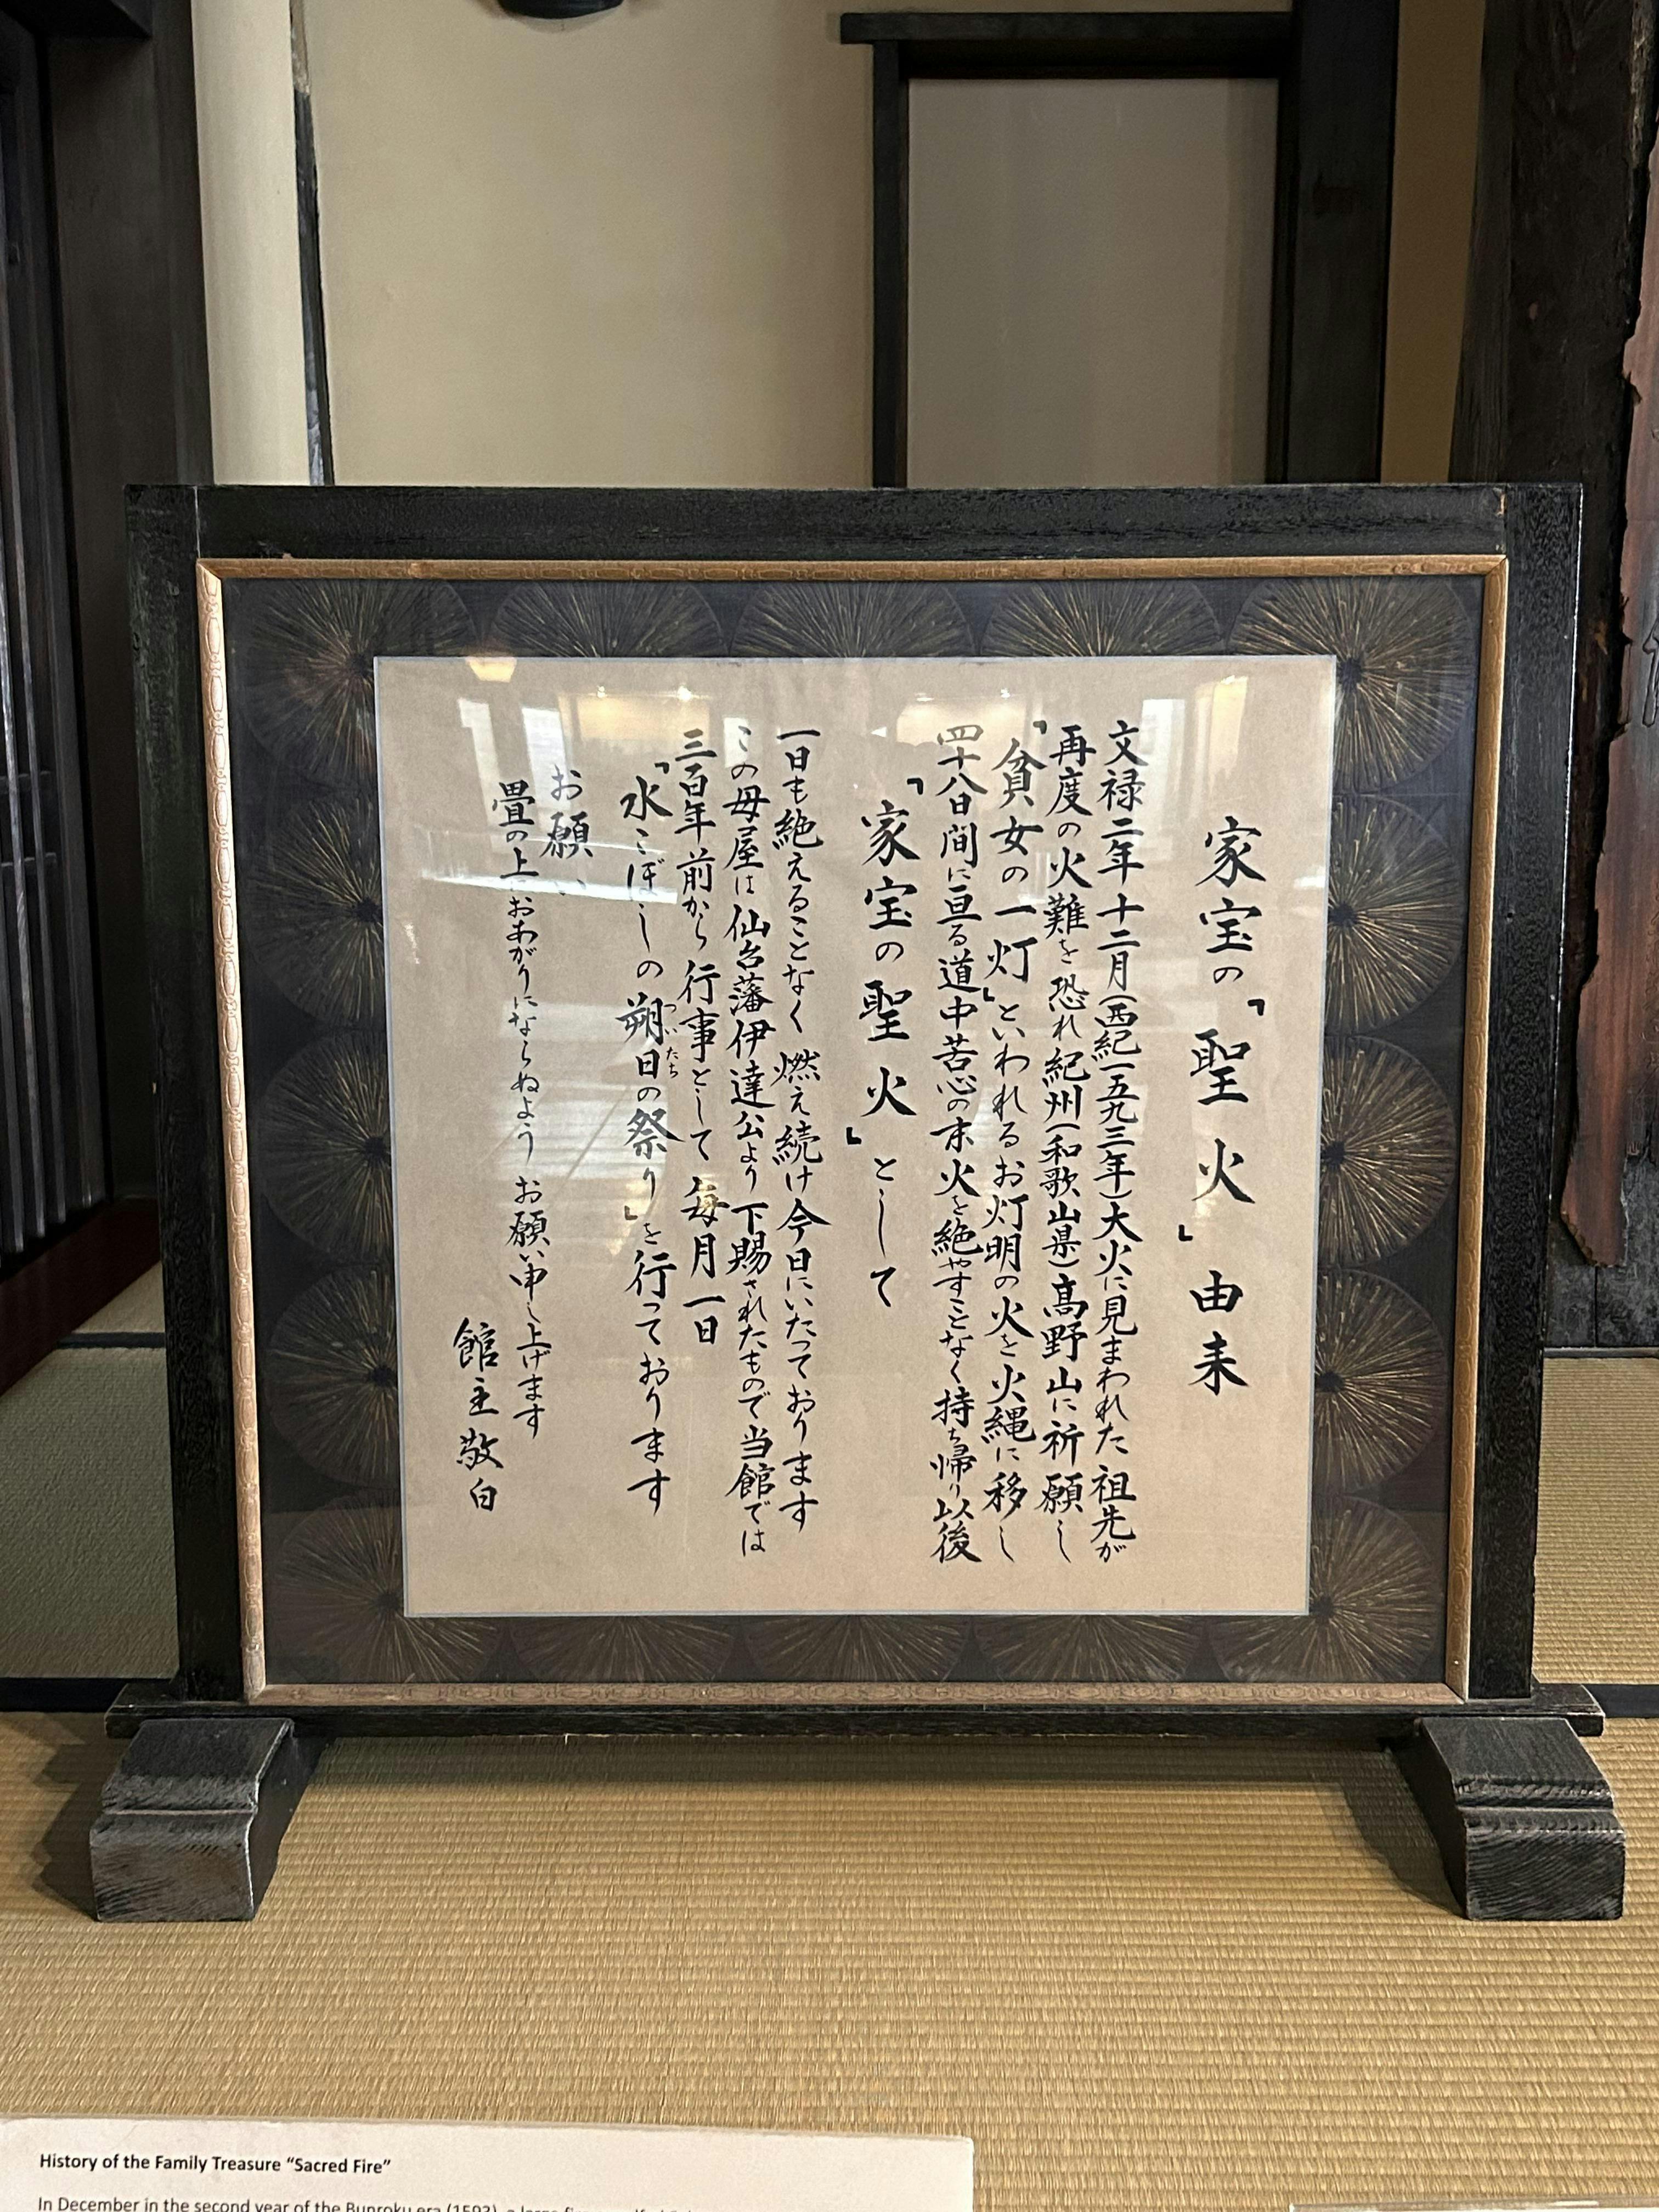 家宝の「聖火」由来
文禄二年十二月(西紀一五九三年)大火に見まわれた祖先が
再度の火難を恐れ紀州(和歌山県)高野山に祈願し
「貧女の一灯」といわれるお灯明の火を火縄に移し
四十八日間に亘る道中苦心の末火を絶やすことなく持ち帰り以後
「家宝の聖火」として
一日も絶えることなく燃え続け今日にいたっております
この母屋は仙台藩伊達公より下賜されたもので当館では
三百年前から行事として毎月一日
「水こぼしの朔日の祭り」を行っております
ついたち
お願い
畳の上におあがりにならぬようお願い申し上げます
館主敬白
History of the Family Treasure “Sacred Fire”
In December in the second year of the Bunroku era (1593), a large fire